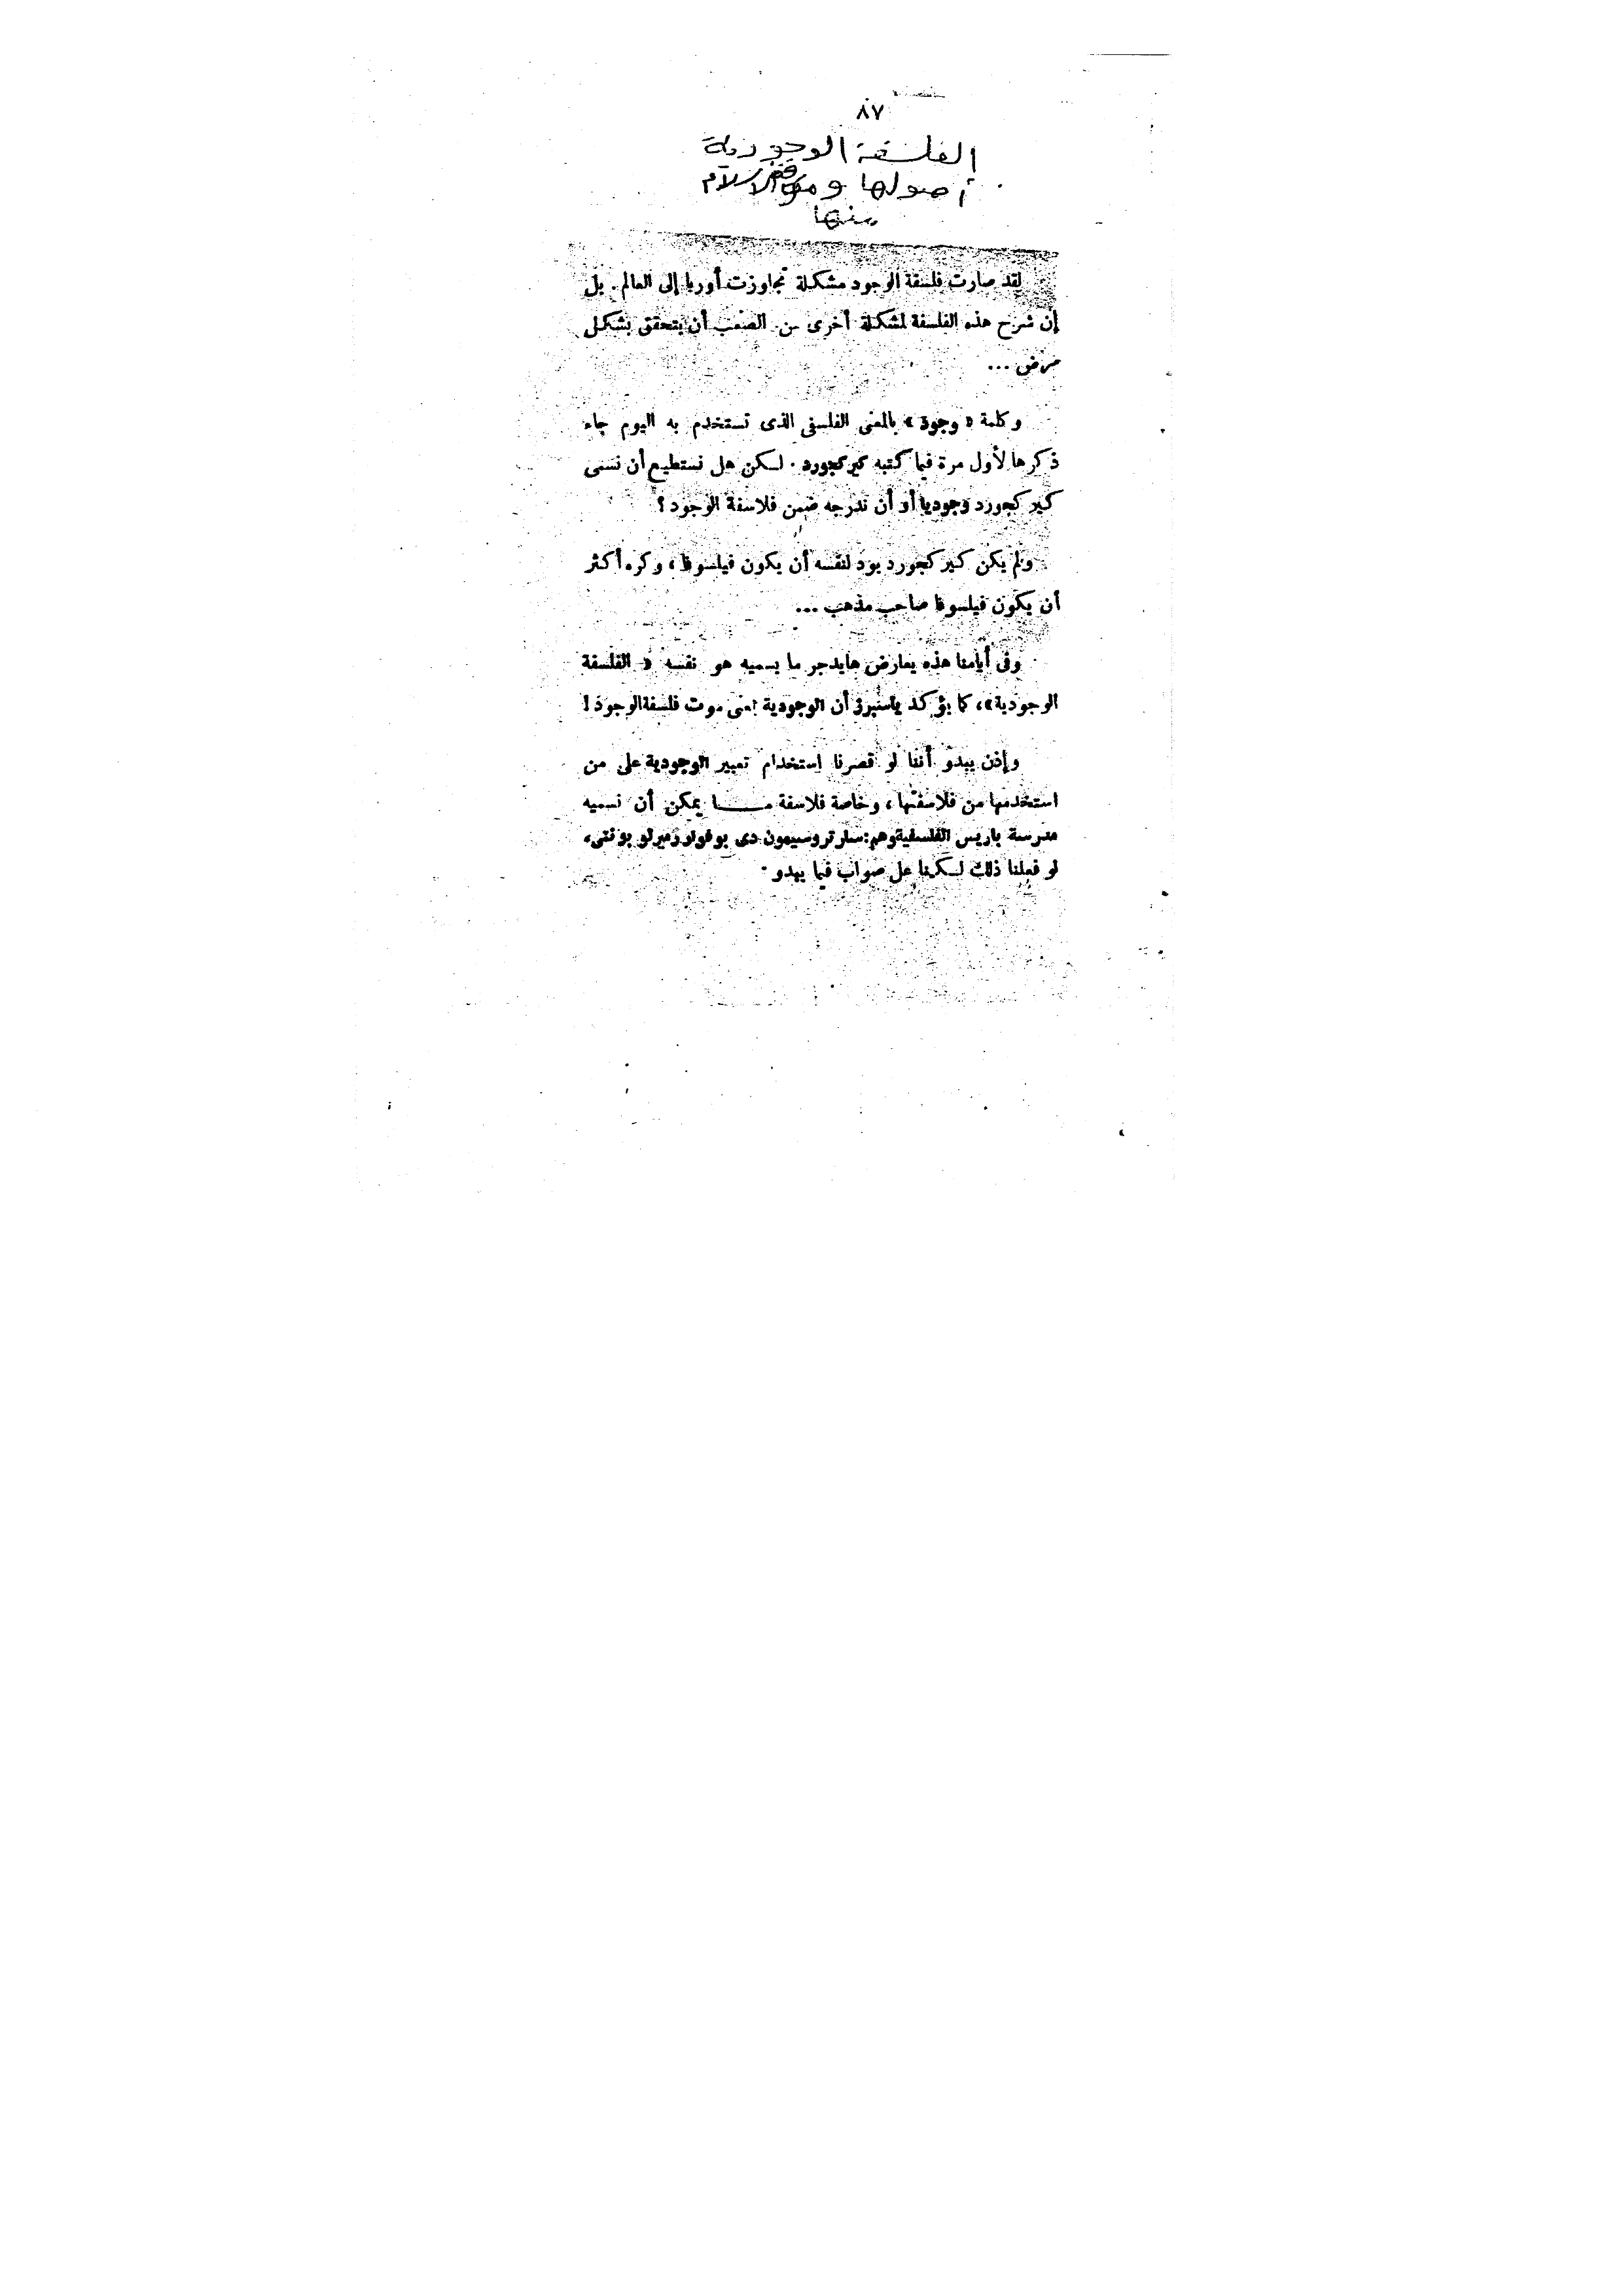 ٨٧
الفلسفة الوجودية
أصولها وموقف الإسلام
منها
لقد صارت فلسفة الوجود مشكلة تجاوزت أوربا إلى العالم. بل
إن شرح هذه الفلسفة لمشكلة أخرى من الصعب أن يتحقق بشكل
مرض ...
وكلمة « وجود » بالمعنى الفلسفى الذى تستخدم به اليوم جاء
ذكرها لأول مرة فيما كتبه كيركجورد . لكن هل نستطيع أن نسمى
كيركجورد وجوديا أو أن ندرجه ضمن فلاسفة الوجود ؟
ولم يكن كيركجورد يود لنفسه أن يكون فيلسوفا ، وكره أكثر
أن يكون فيلسوفا صاحب مذهب ...
وفى أيامنا هذه يعارض هايدجر ما يسميه هو نفسه « الفلسفة
الوجودية »، كما يؤكد ياسبرز أن الوجودية تعنى موت فلسفة الوجود !
وإذن يبدو أننا لو قصرنا استخدام تعبير الوجودية على من
استخدمها من فلاسفتها ، وخاصة فلاسفة ما يمكن أن نسميه
مدرسة باريس الفلسفية وهم : سارتر وسيمون دى بوفوار وميرلو بونتى ،
لو فعلنا ذلك لكنا على صواب فيما يبدو .